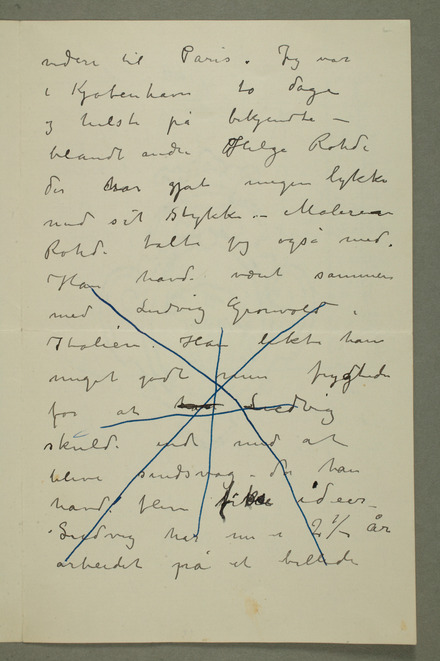 videre til Paris. Jeg var
i Kjøbenhavn to dage
og hilste på bekjendte –
blandt andre Helge Rohde
der har gjort megen lykke
med sit Stykke – Maleren
Rohde talte jeg også med.
Han havde været sammen
med Ludvig Grønvold i
Italien. Han likte ham
meget godt men frygtede
for at Ludvig
skulde ende med at
blive sindsvag – da han
havde flere fixe ideer –
Ludvig har nu i 2 ½ år
arbeidet på et billede